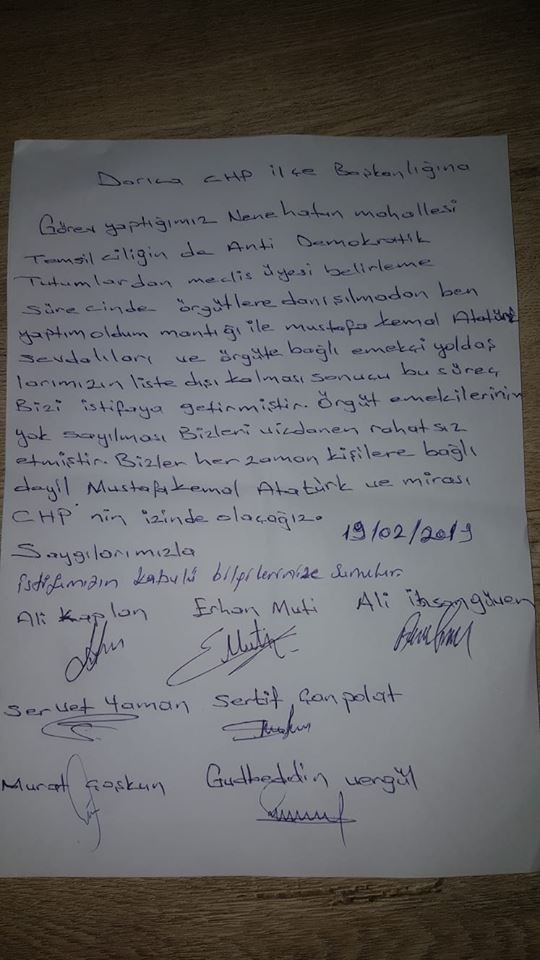 Darıca CHP ilçe Başkanlığına
Görev yaptığımız Nenehatun mahallesi
Temsilciliğin de Anti Demokratik
Tutumlardan meclis üyesi belirleme
sürecinde örgütlere danışılmadan ben
yaptım oldum mantığı ile mustafa kemal Atatürk
sevdalıları ve örgüte bağlı emekçi yoldaş
larımızın liste dışı kalması sonucu bu süreç
Bizi istifaya getirmiştir. Örgüt emekilerinin
yok sayılması Bizleri vicdanen rahatsız
etmiştir. Bizler her zaman kişilere bağlı
dayil Mustafa kemal Atatürk ve mirası
CHP'nin izinde olacağız.
19/02/2019
Saygılarımızla
istifamızın kabulü bilgilerinize sunulur.
Ali Kaplan Erhan Muti Ali ihsan güven
E Muti
Servet Yaman Sertif Canpolat
Murat Coşkun Gudbeddin vergül